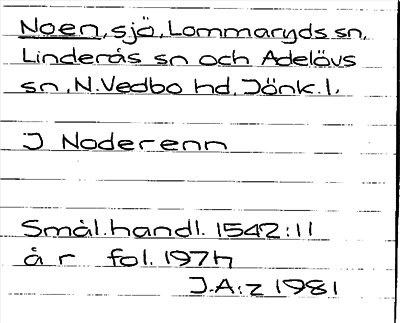 Noen, sjö, Lommaryds sn,
Linderås sn och Adelövs
sn, N. Vedbo hd, Jönk. l.
J Noderenn
Smål. handl. 1542:11
år fol. 197h
J.A:z 1981